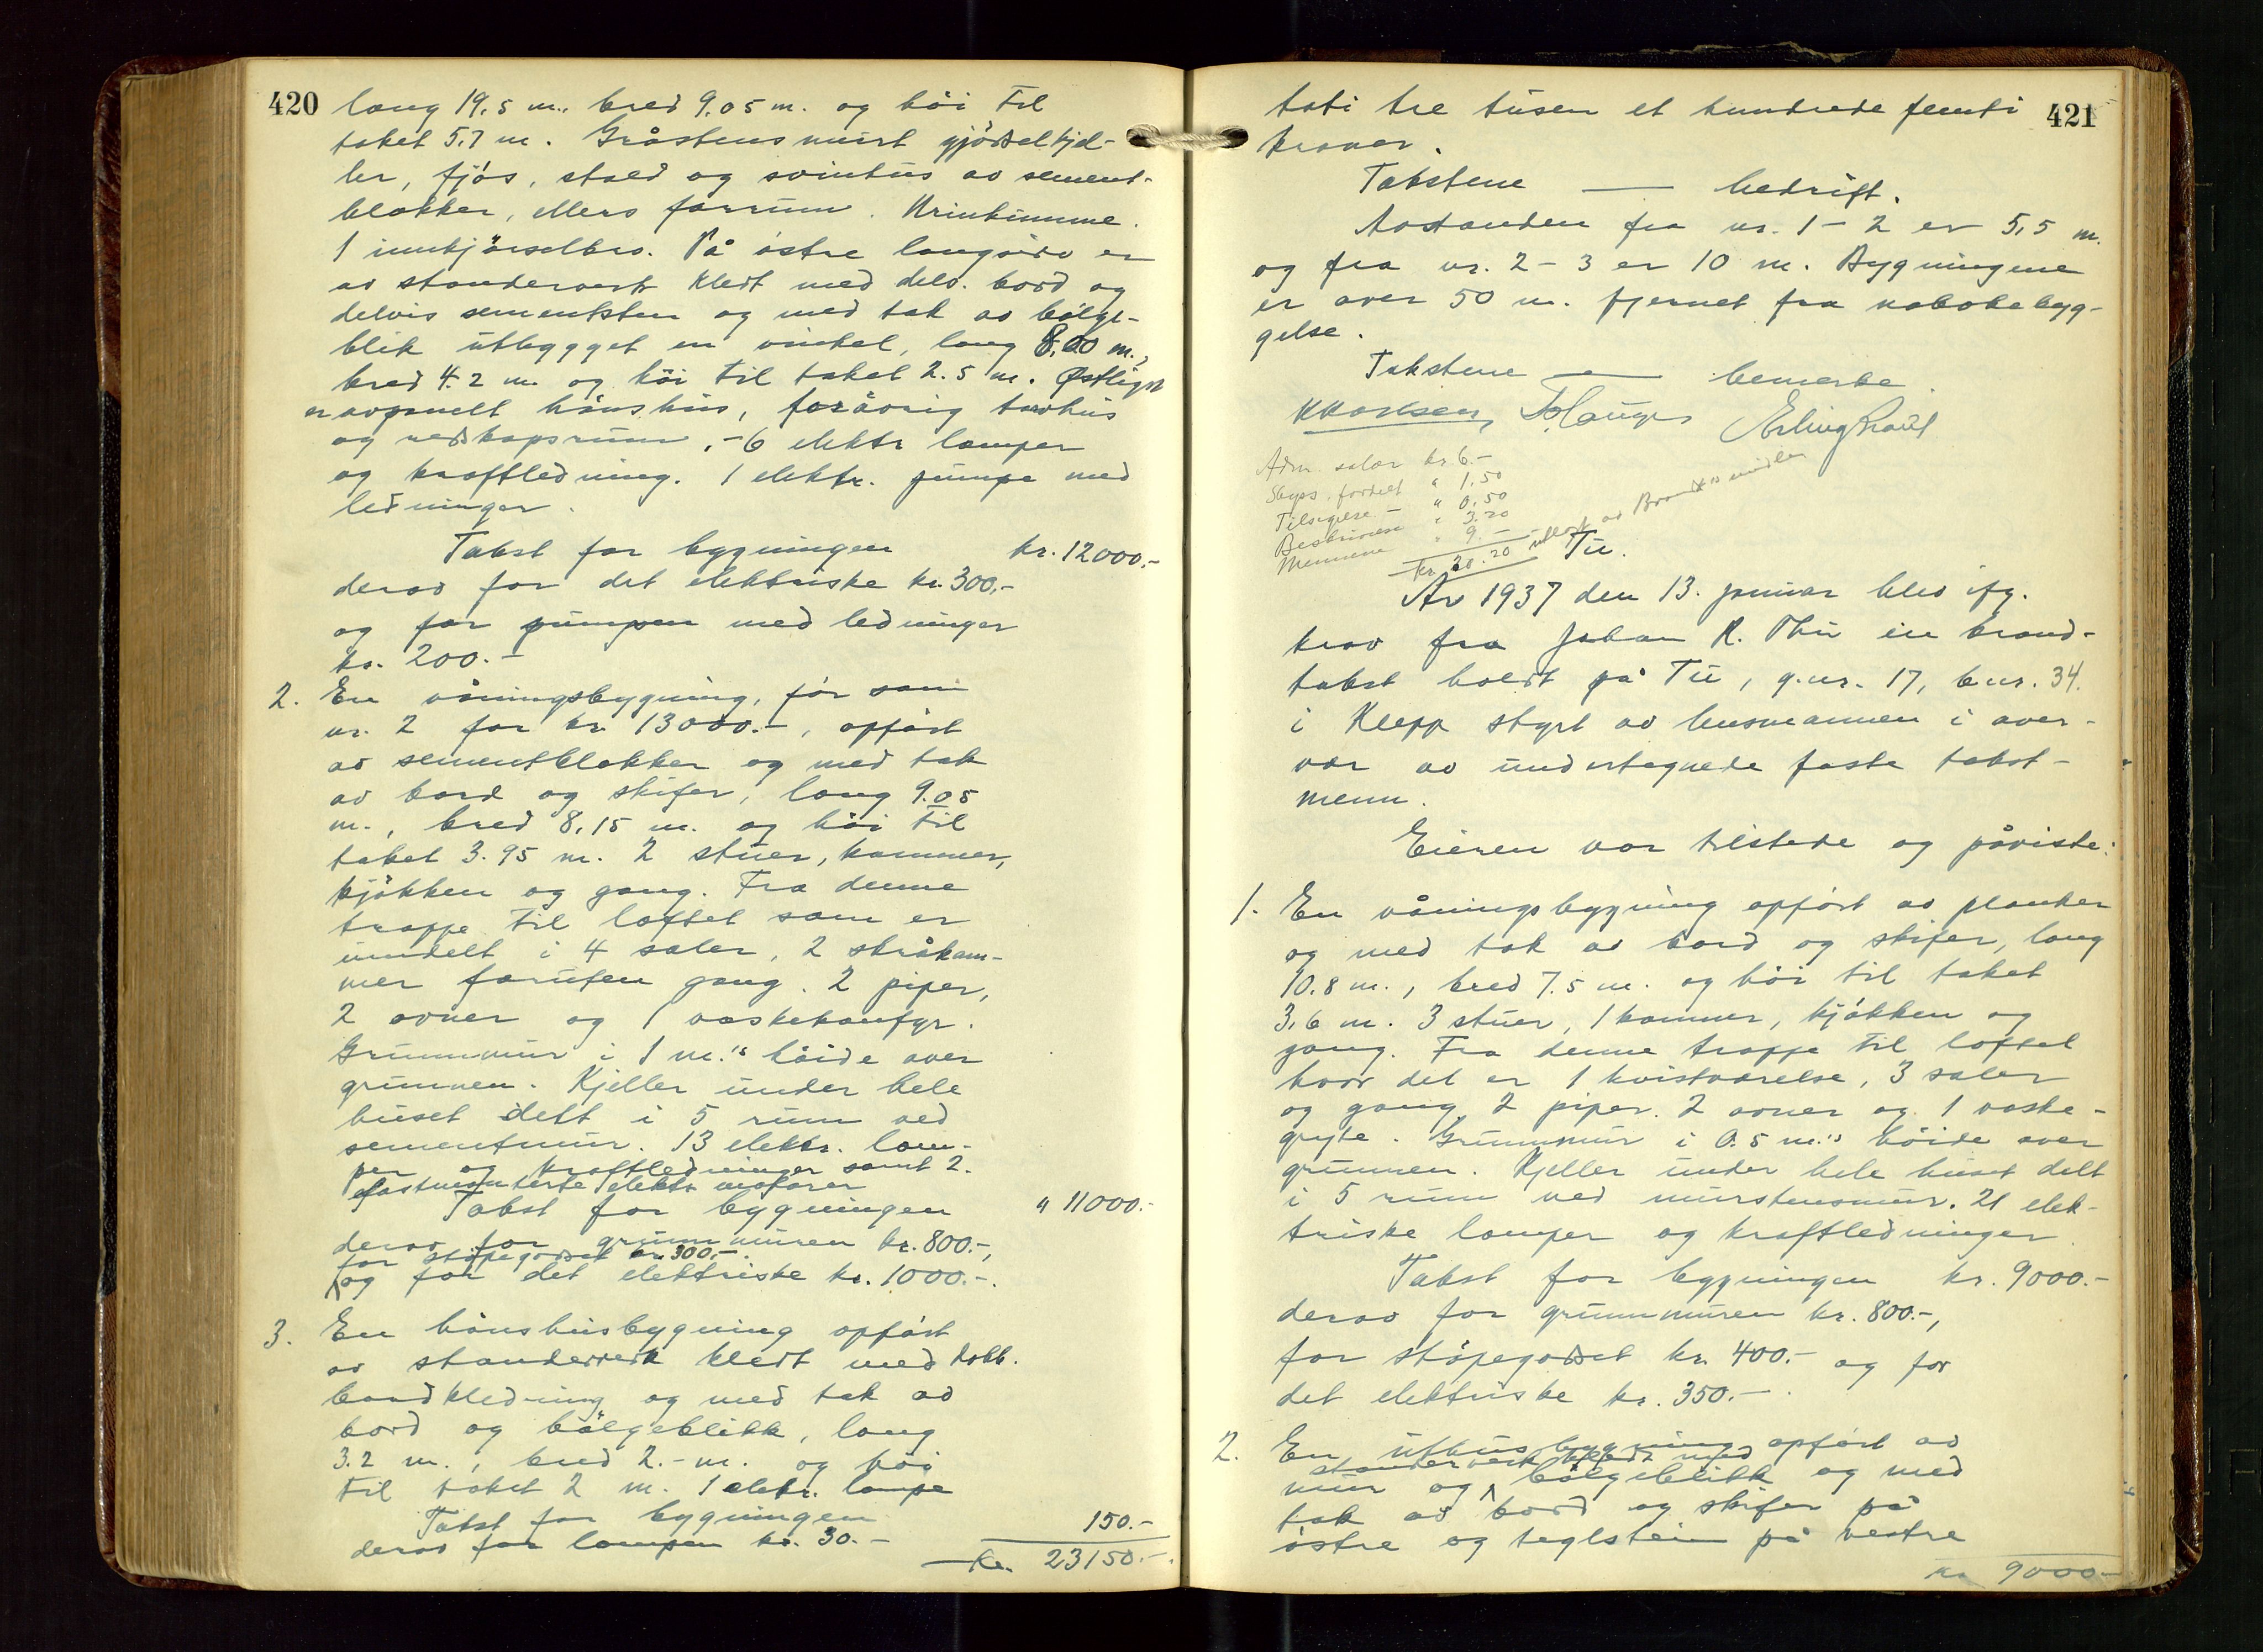 420
lang 19,5 m., bred 9.05 m. og höi til
taket 5,7 m. Gråstensmurt gjödselkjel-
ler, fjös, stald og svinhus av sement-
blokker, ellers forrum. Urinkumme.
1 innkjörselbro. På östre langside er
av standerverk kledt med delv. bord og
delvis sementsten og med tak av bölge-
blik utbygget en vinkel, lang 8,00 m.,
bred 4.2 m. og höi til taket 2.5 m. Østligst
er avpanelt hönshus, forövrig torvhus
og redskapsrum. - 6 elektr lamper
og kraftledning. 1 elektr. pumpe med
ledninger.
Takst for bygningen kr. 12000.-
derav for det elektriske kr. 300,-
og for pumpen med ledninger
kr. 200.-
2. En våningsbygning, för som
nr. 2 for kr. 13000.-, opfört
av sementblokker og med tak
av bord og skifer, lang 9.05
m., bred 8,15 m. og höi til
taket 3.95 m. 2 stuer, kammer,
kjökken og gang. Fra denne
trappe til loftet som er
inndelt i 4 saler, 2 skråkam-
mer foruten gang. 2 piper,
2 ovner og 1 vaskekomfyr.
Grunnmur i 1 m.'s höide over
grunnen. Kjeller under hele
huset delt i 5 rum ved
sementmur. 13 elektr. lam-
per og kraftledninger samt 2.
fastmonterte elektr motorer
Takst for bygningen " 11000.-
derav for grunnmuren kr. 800.-,
for stöpegodset kr. 300,-
og for det elektriske kr. 1000.-.
3. En hönshusbygning opfört
av standerverk kledt med dobb.
bordkledning og med tak av
bord og bölgeblikk, lang
3.2 m., bred 2.- m. og höi
til taket 2 m. 1 elektr. lampe
Takst for bygningen 150.-
derav for lampen kr. 30.-
Kr. 23150.-
421
toti tre tusen et hundrede femti
kroner.
Takstene — bedrift.
Avstanden fra nr. 1 - 2 er 5,5 m.
og fra nr. 2 - 3 er 10 m. Bygningene
er over 50 m. fjernet fra nabobebyg-
gelse.
Takstene — bemerke.
K Karlsen, T. Hauge Erling
Adm. salær kr 6.-
Skyss. fordelt " 1,50
Tilsigelse - " 0,50
Beskrivelse " 3.20
Mennene " 9.-
Kr. 20.20 utlagt av Brandk.s midler
Tu.
År 1937 den 13. januar blev ifg.
krav fra Johan R. Thu en brand-
takst holdt på Tu, g.nr. 17, bnr. 34.
i Klepp styrt av lensmannen i over-
vær av undertegnede faste takst-
menn.
Eieren var tilstede og påviste:
1. En våningsbygning opfört av planker
og med tak av bord og skifer, lang
10.8 m., bred 7.5 m. og höi til taket
3,6 m. 3 stuer, 1 kammer, kjökken og
gang. Fra denne trappe til loftet
hvor det er 1 kvistværelse, 3 saler
og gang. 2 piper. 2 ovner og 1 vaske-
gryte. Grunnmur i 0.5 m.'s höide over
grunnen. Kjeller under hele huset delt
i 5 rum ved murstensmur. 21 elek-
triske lamper og kraftledninger
Takst for bygningen kr. 9000.-
derav for grunnmuren kr. 800.-,
for stöpegodset kr. 400.- og for
det elektriske kr. 350.-.
2. En uthusbygning opfört av
standerverk kledt med
mur og bölgeblikk og med
tak av bord og skifer på
östre og teglstein på vestre
kr 9000.-